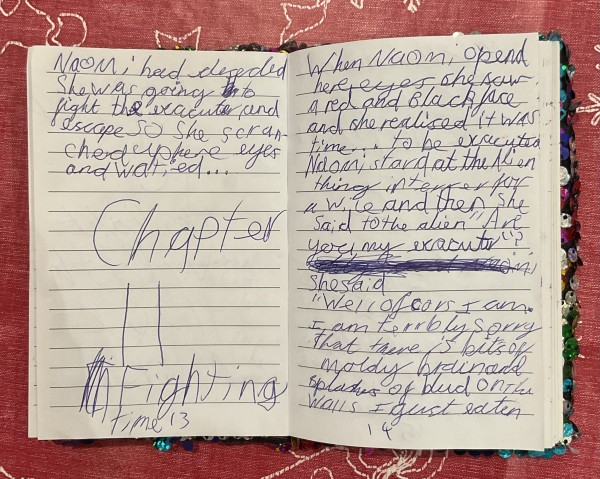 Naomi had deseded
She was going to
fight the exacuter and
escape so she scran-
ched up here eyes
and watied...
Chapter
11
Fighting
time 13
When Naomi opend
here eyes she saw
a red and Black face
and she realised it was
time... to be executed
Naomi stard at the Alien
thing interrer for
a wile and then she
said to the alien "Are
you my exacuter"?
she said
"Well of cors I am.
I am terrbly sorry
that there is bits of
moldy brain and
splashes of blud on the
walls I gust eaten
14